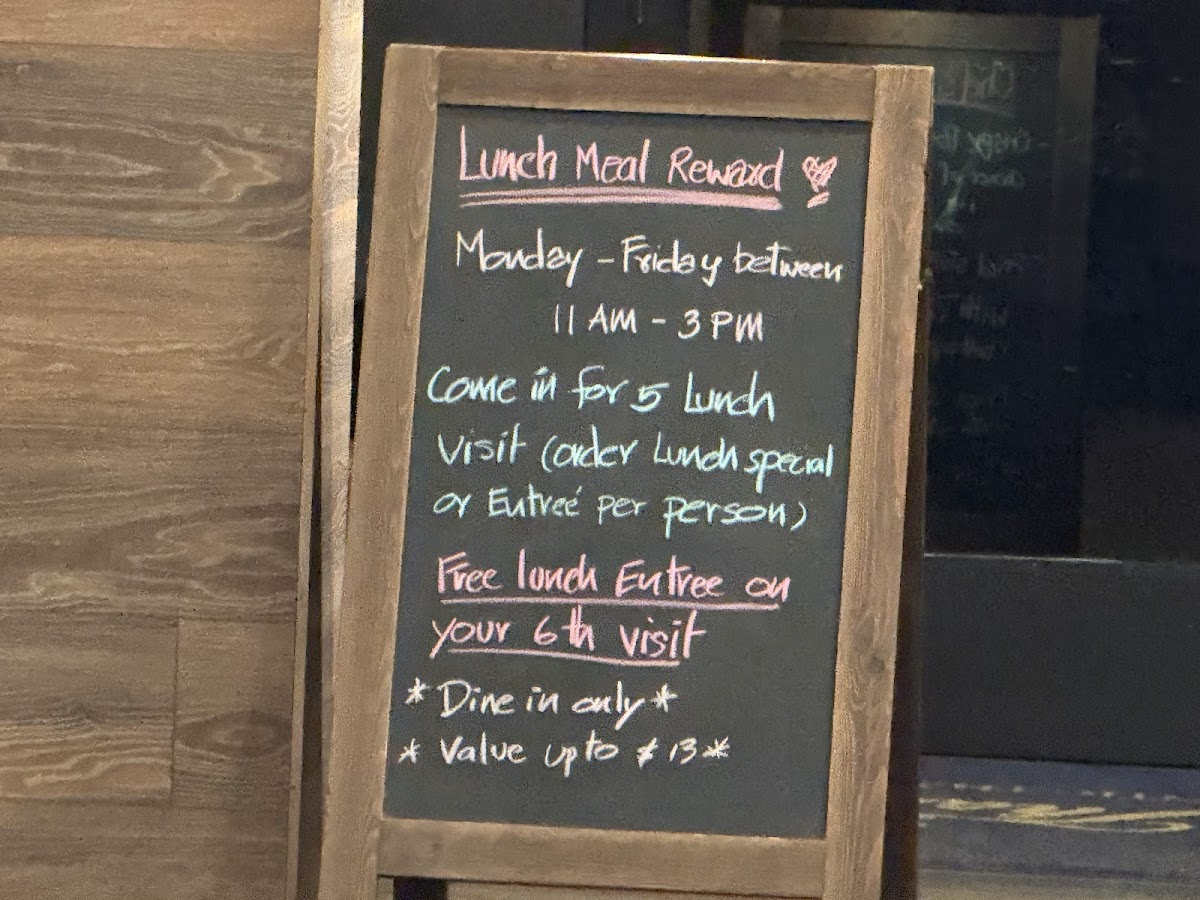 Lunch Meal Reward
Monday - Friday between
11 AM - 3 PM
Come in for 5 Lunch
visit (order Lunch special
or Entreé per person)
Free lunch Entree on
your 6th visit
* Dine in only *
* Value up to $13 *